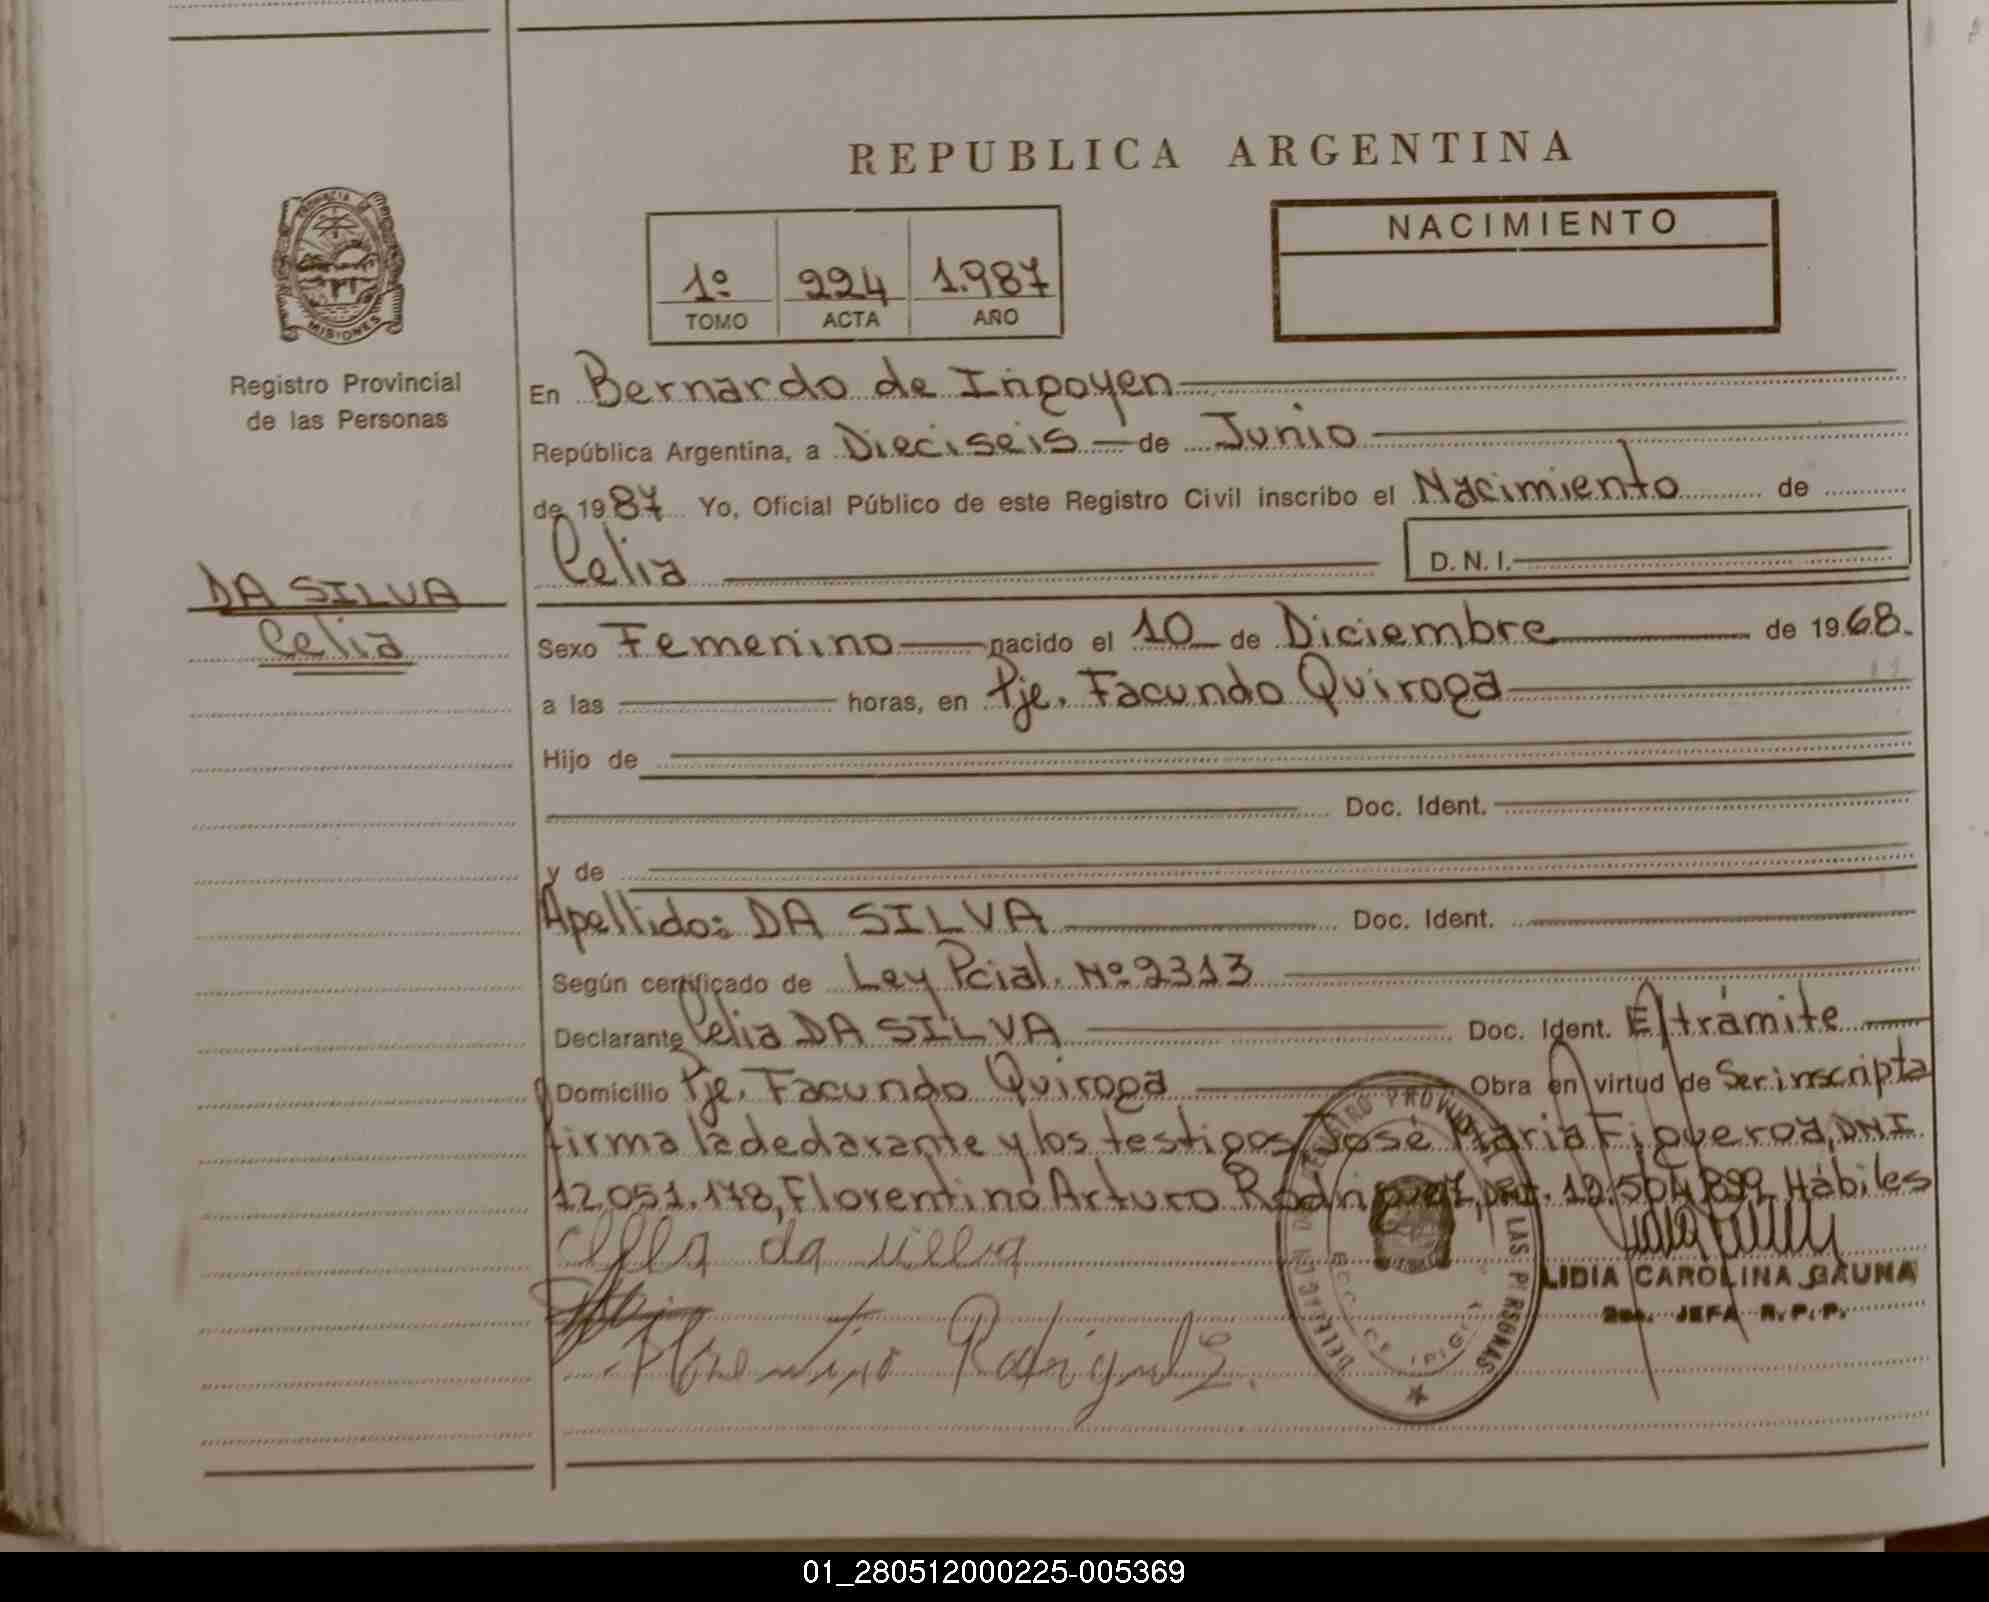 REPUBLICA ARGENTINA
NACIMIENTO
1º 224 1.987
TOMO ACTA AÑO
PROVINCIA DE
MISIONES
Registro Provincial
de las Personas
DA SILVA
Celia
En Bernardo de Irigoyen
República Argentina, a Dieciseis de Junio
de 1987 Yo, Oficial Público de este Registro Civil inscribo el Nacimiento de
Celia D. N. I.
Sexo Femenino nacido el 10 de Diciembre de 1968.
a las horas, en Pje. Facundo Quiroga
Hijo de
Doc. Ident.
y de
Apellido: DA SILVA Doc. Ident.
Según certificado de Ley Pcial. Nº 2313
Declarante Celia DA SILVA Doc. Ident. E/trámite
Domicilio Pje. Facundo Quiroga Obra en virtud de Ser inscripta
firma la declarante y los testigos José Maria Figueroa, DNI
12.051.178, Florentino Arturo Rodriguez, DNI. 12.504.899 Hábiles
da
Florentino Rodriguez.
LAS PERSONAS
LIDIA CAROLINA GAUNA
JEFA R.P.P.
01_280512000225-005369